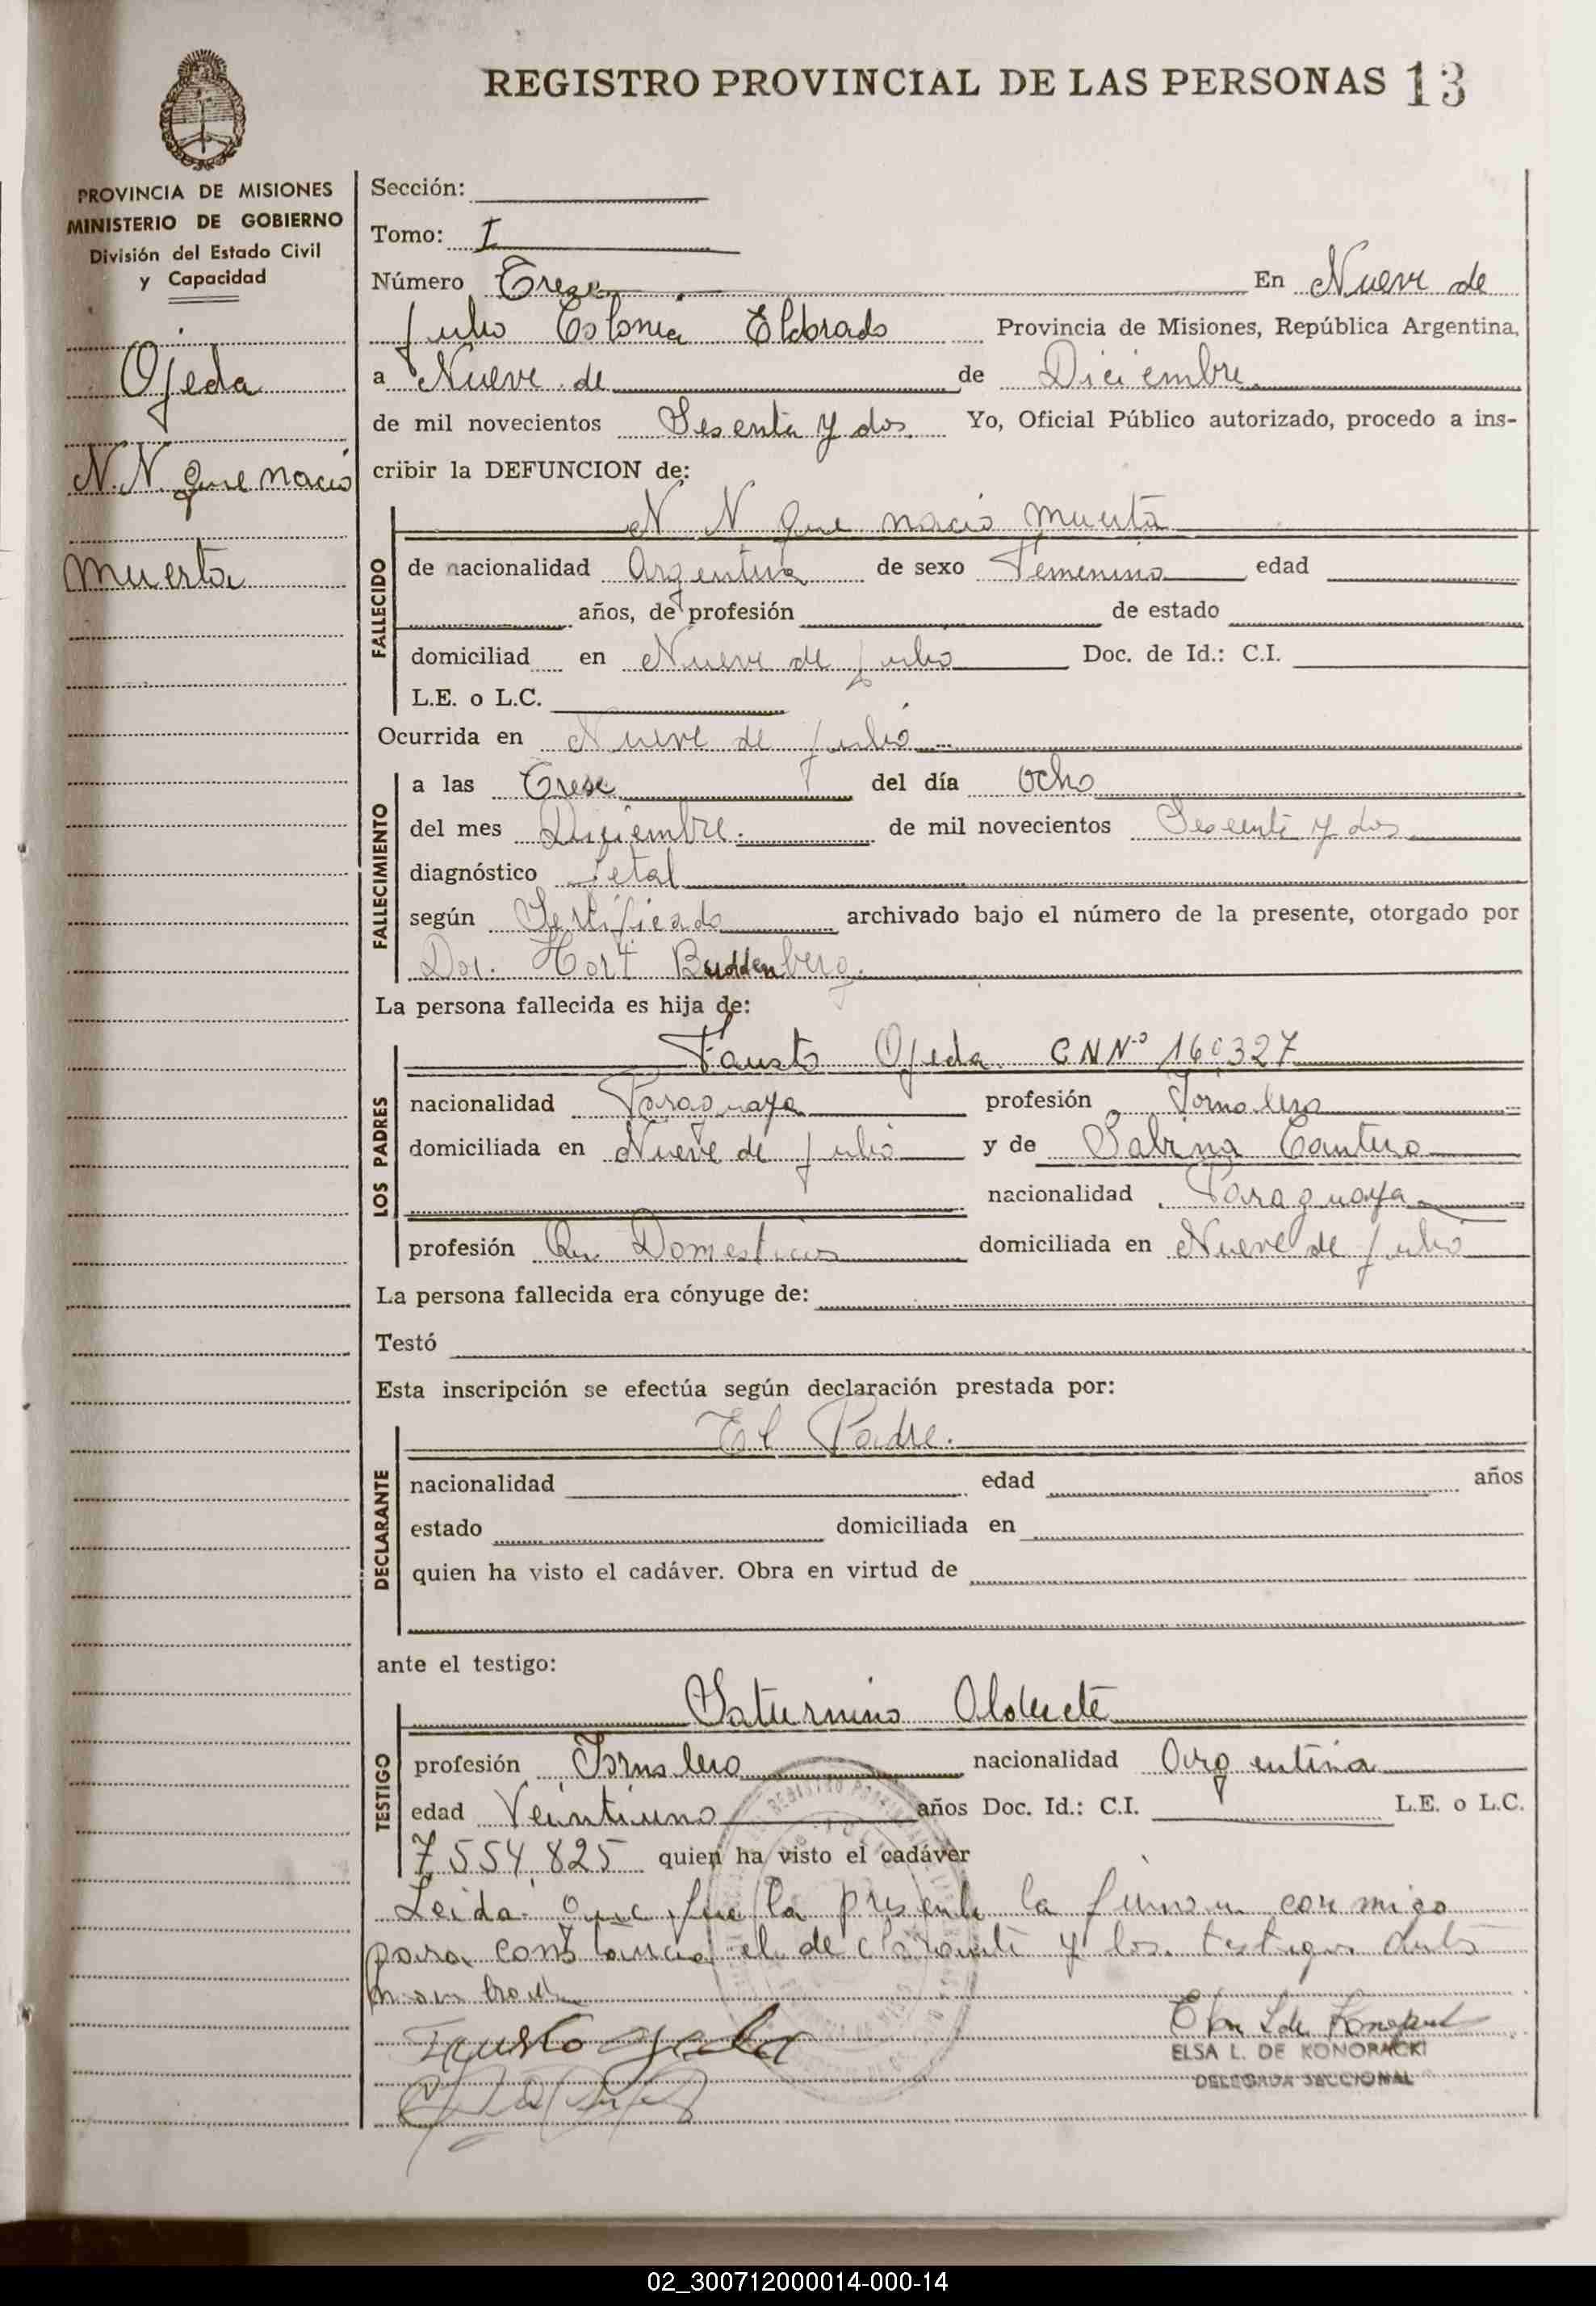 REGISTRO PROVINCIAL DE LAS PERSONAS 13
PROVINCIA DE MISIONES
MINISTERIO DE GOBIERNO
División del Estado Civil
y Capacidad
Ojeda
N.N. que nació
muerta
Sección:
Tomo: I
Número Trese En Nueve de
Julio Colonia Eldorado Provincia de Misiones, República Argentina,
a Nueve de de Diciembre
de mil novecientos Sesenta y dos. Yo, Oficial Público autorizado, procedo a ins-
cribir la DEFUNCION de:
FALLECIDO
N N que nació muerta
de nacionalidad Argentina de sexo Femenino edad
años, de profesión de estado
domiciliad en Nueve de Julio Doc. de Id.: C.I.
L.E. o L.C.
Ocurrida en Nueve de Julio
FALLECIMIENTO
a las Trese del día Ocho
del mes Diciembre. de mil novecientos Sesenta y dos
diagnóstico Fetal
según Sertificado archivado bajo el número de la presente, otorgado por
Dor. Hort Buddenberg.
La persona fallecida es hija de:
LOS PADRES
Fausto Ojeda CNNº 160327
nacionalidad Paraguaya profesión Jornalero
domiciliada en Nueve de Julio y de Sabina Cantero
nacionalidad Paraguaya
profesión Qu. Domesticos domiciliada en Nueve de Julio
La persona fallecida era cónyuge de:
Testó
Esta inscripción se efectúa según declaración prestada por:
DECLARANTE
El Padre.
nacionalidad edad años
estado domiciliada en
quien ha visto el cadáver. Obra en virtud de
ante el testigo:
TESTIGO
Saturnino Alderete
profesión Jornalero nacionalidad Argentina
edad Veintiuno años Doc. Id.: C.I. L.E. o L.C.
7554825 quien ha visto el cadáver
Leida que fue la presente la firman conmigo
para constancia el declarante y los testigos antes
nombrado
Fausto Ojeda
ELSA L. DE KONOPACKI
DELEGADA SECCIONAL
02_300712000014-000-14